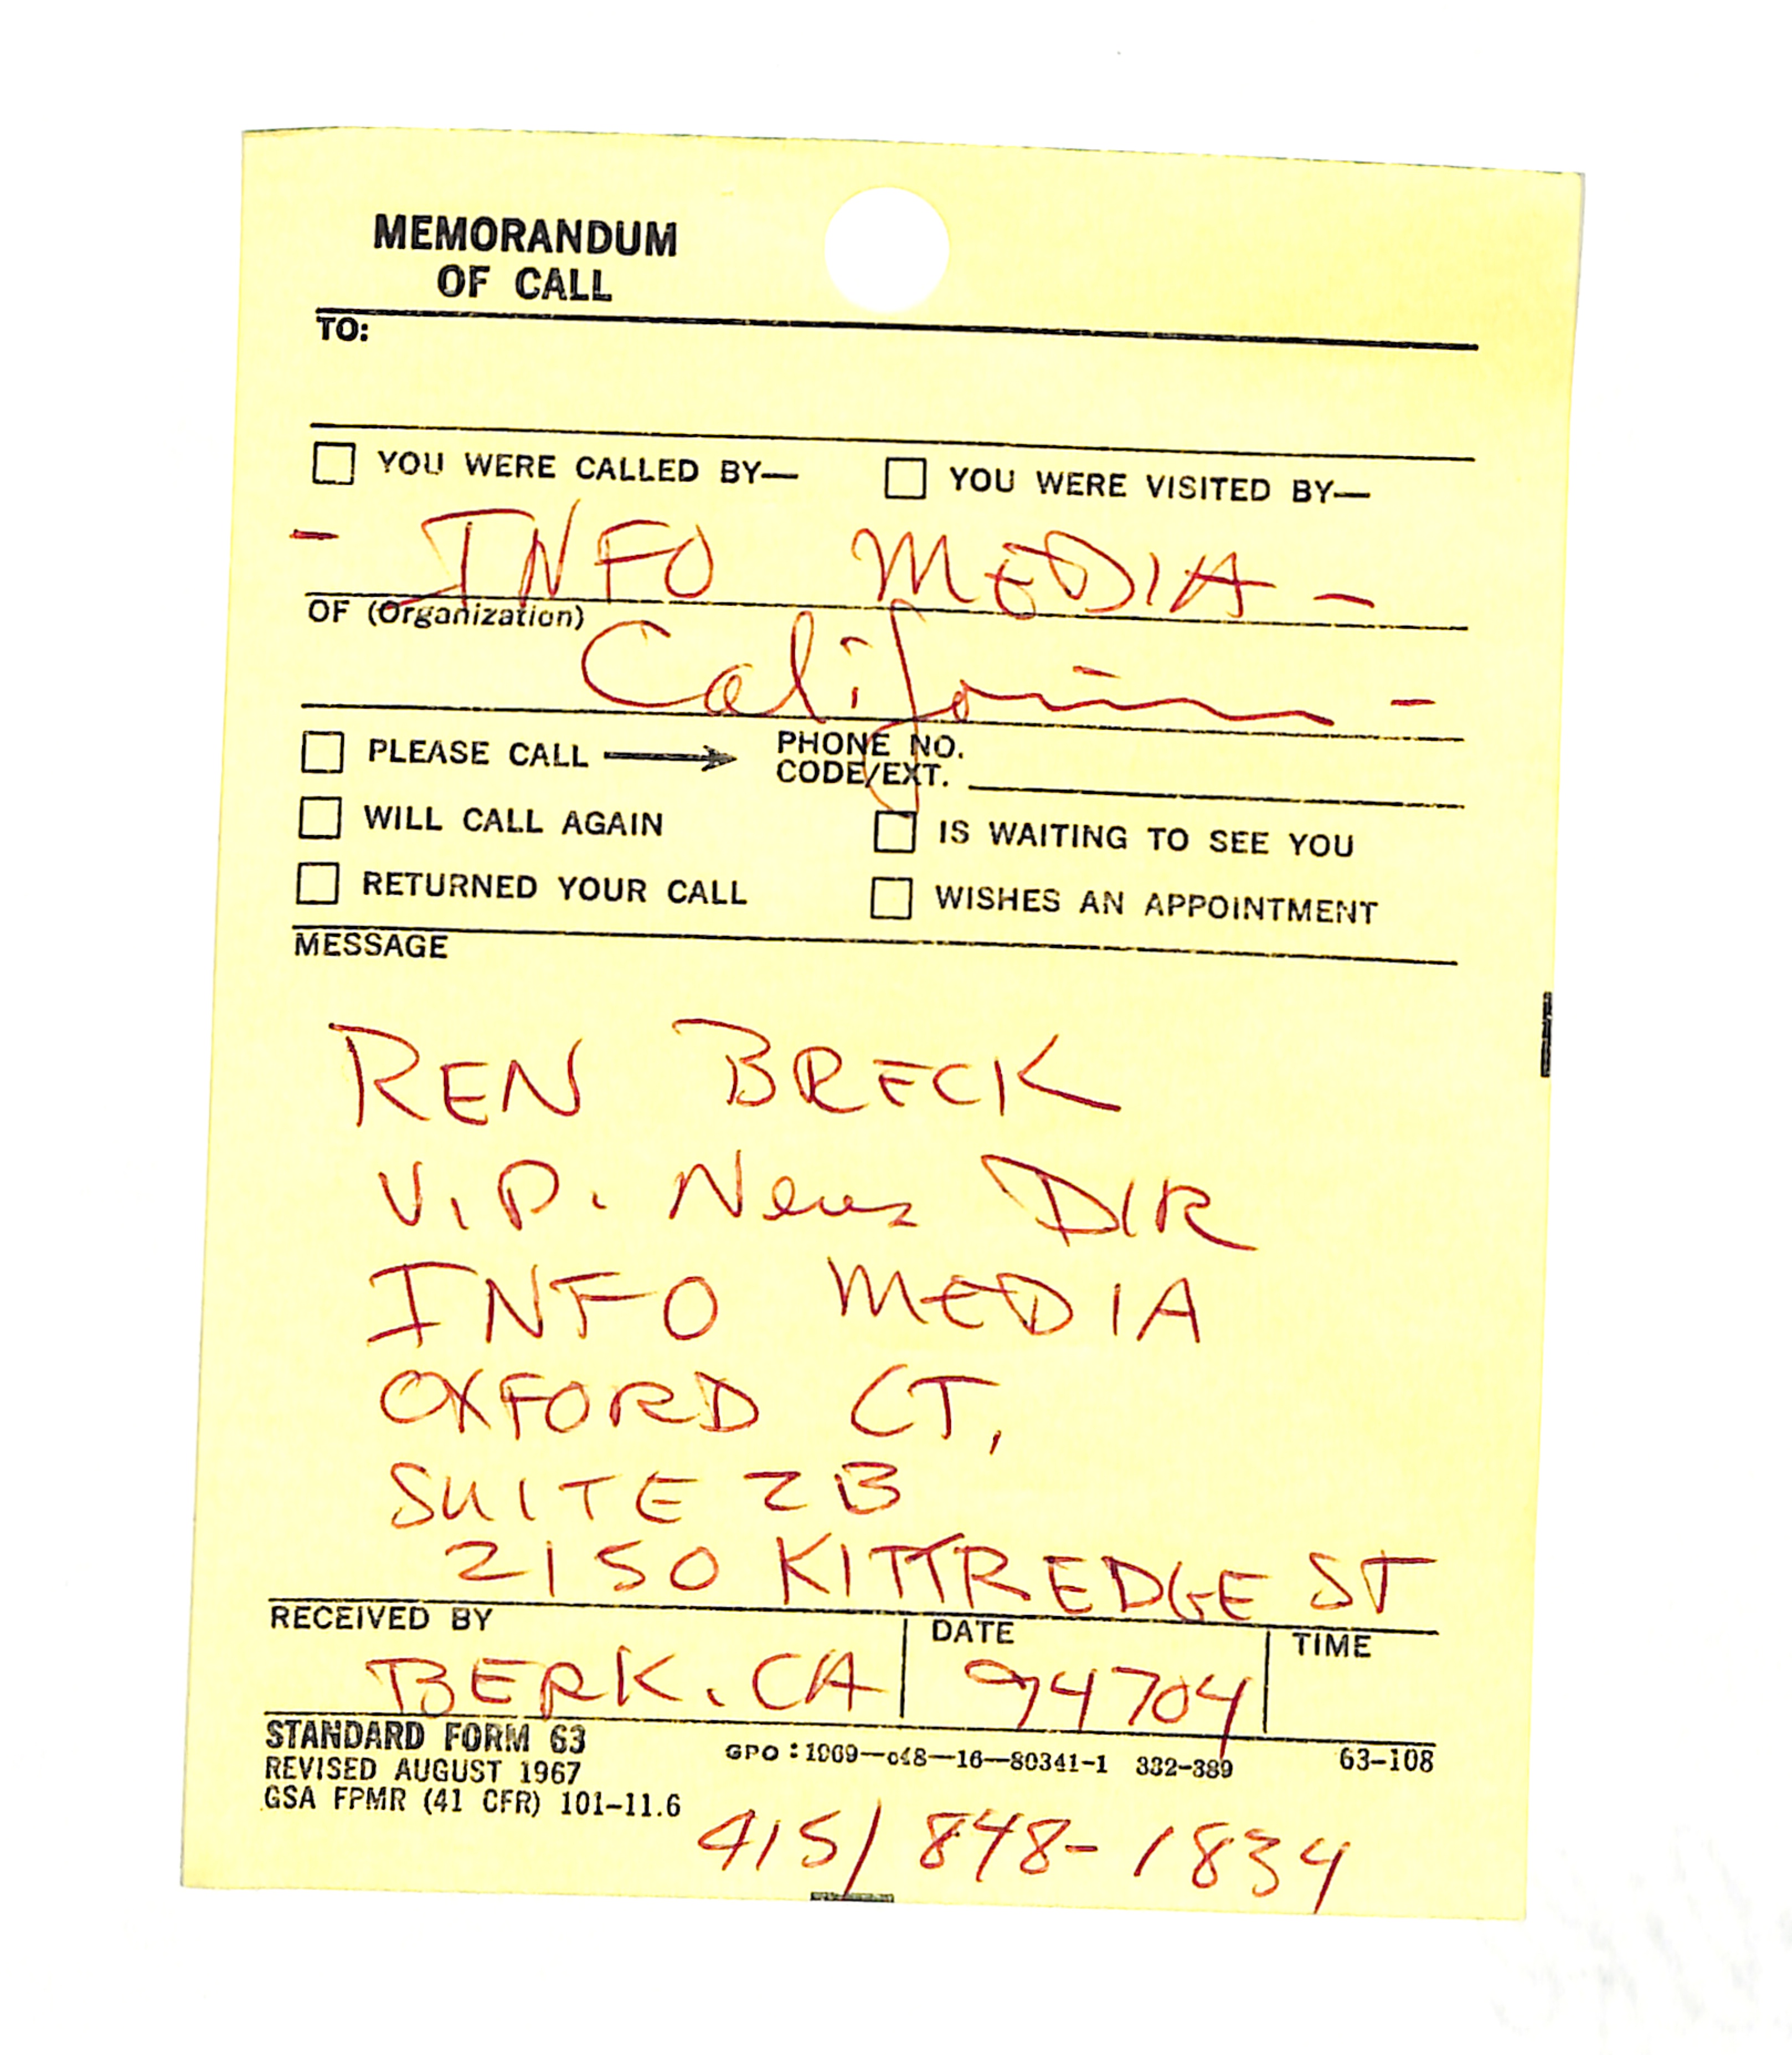 MEMORANDUM
OF CALL
TO:
YOU WERE CALLED BY— YOU WERE VISITED BY—
- INFO MEDIA -
OF (Organization)
California -
PLEASE CALL → PHONE NO.
CODE/EXT.
WILL CALL AGAIN IS WAITING TO SEE YOU
RETURNED YOUR CALL WISHES AN APPOINTMENT
MESSAGE
REN BRECK
V.P. News DIR
INFO MEDIA
OXFORD CT,
SUITE 2B
2150 KITTREDGE ST
RECEIVED BY DATE TIME
BERK. CA 94704
STANDARD FORM 63
REVISED AUGUST 1967
GSA FPMR (41 CFR) 101-11.6
GPO : 1969—c48—16—80341-1 332-389 63-108
415/848-1834